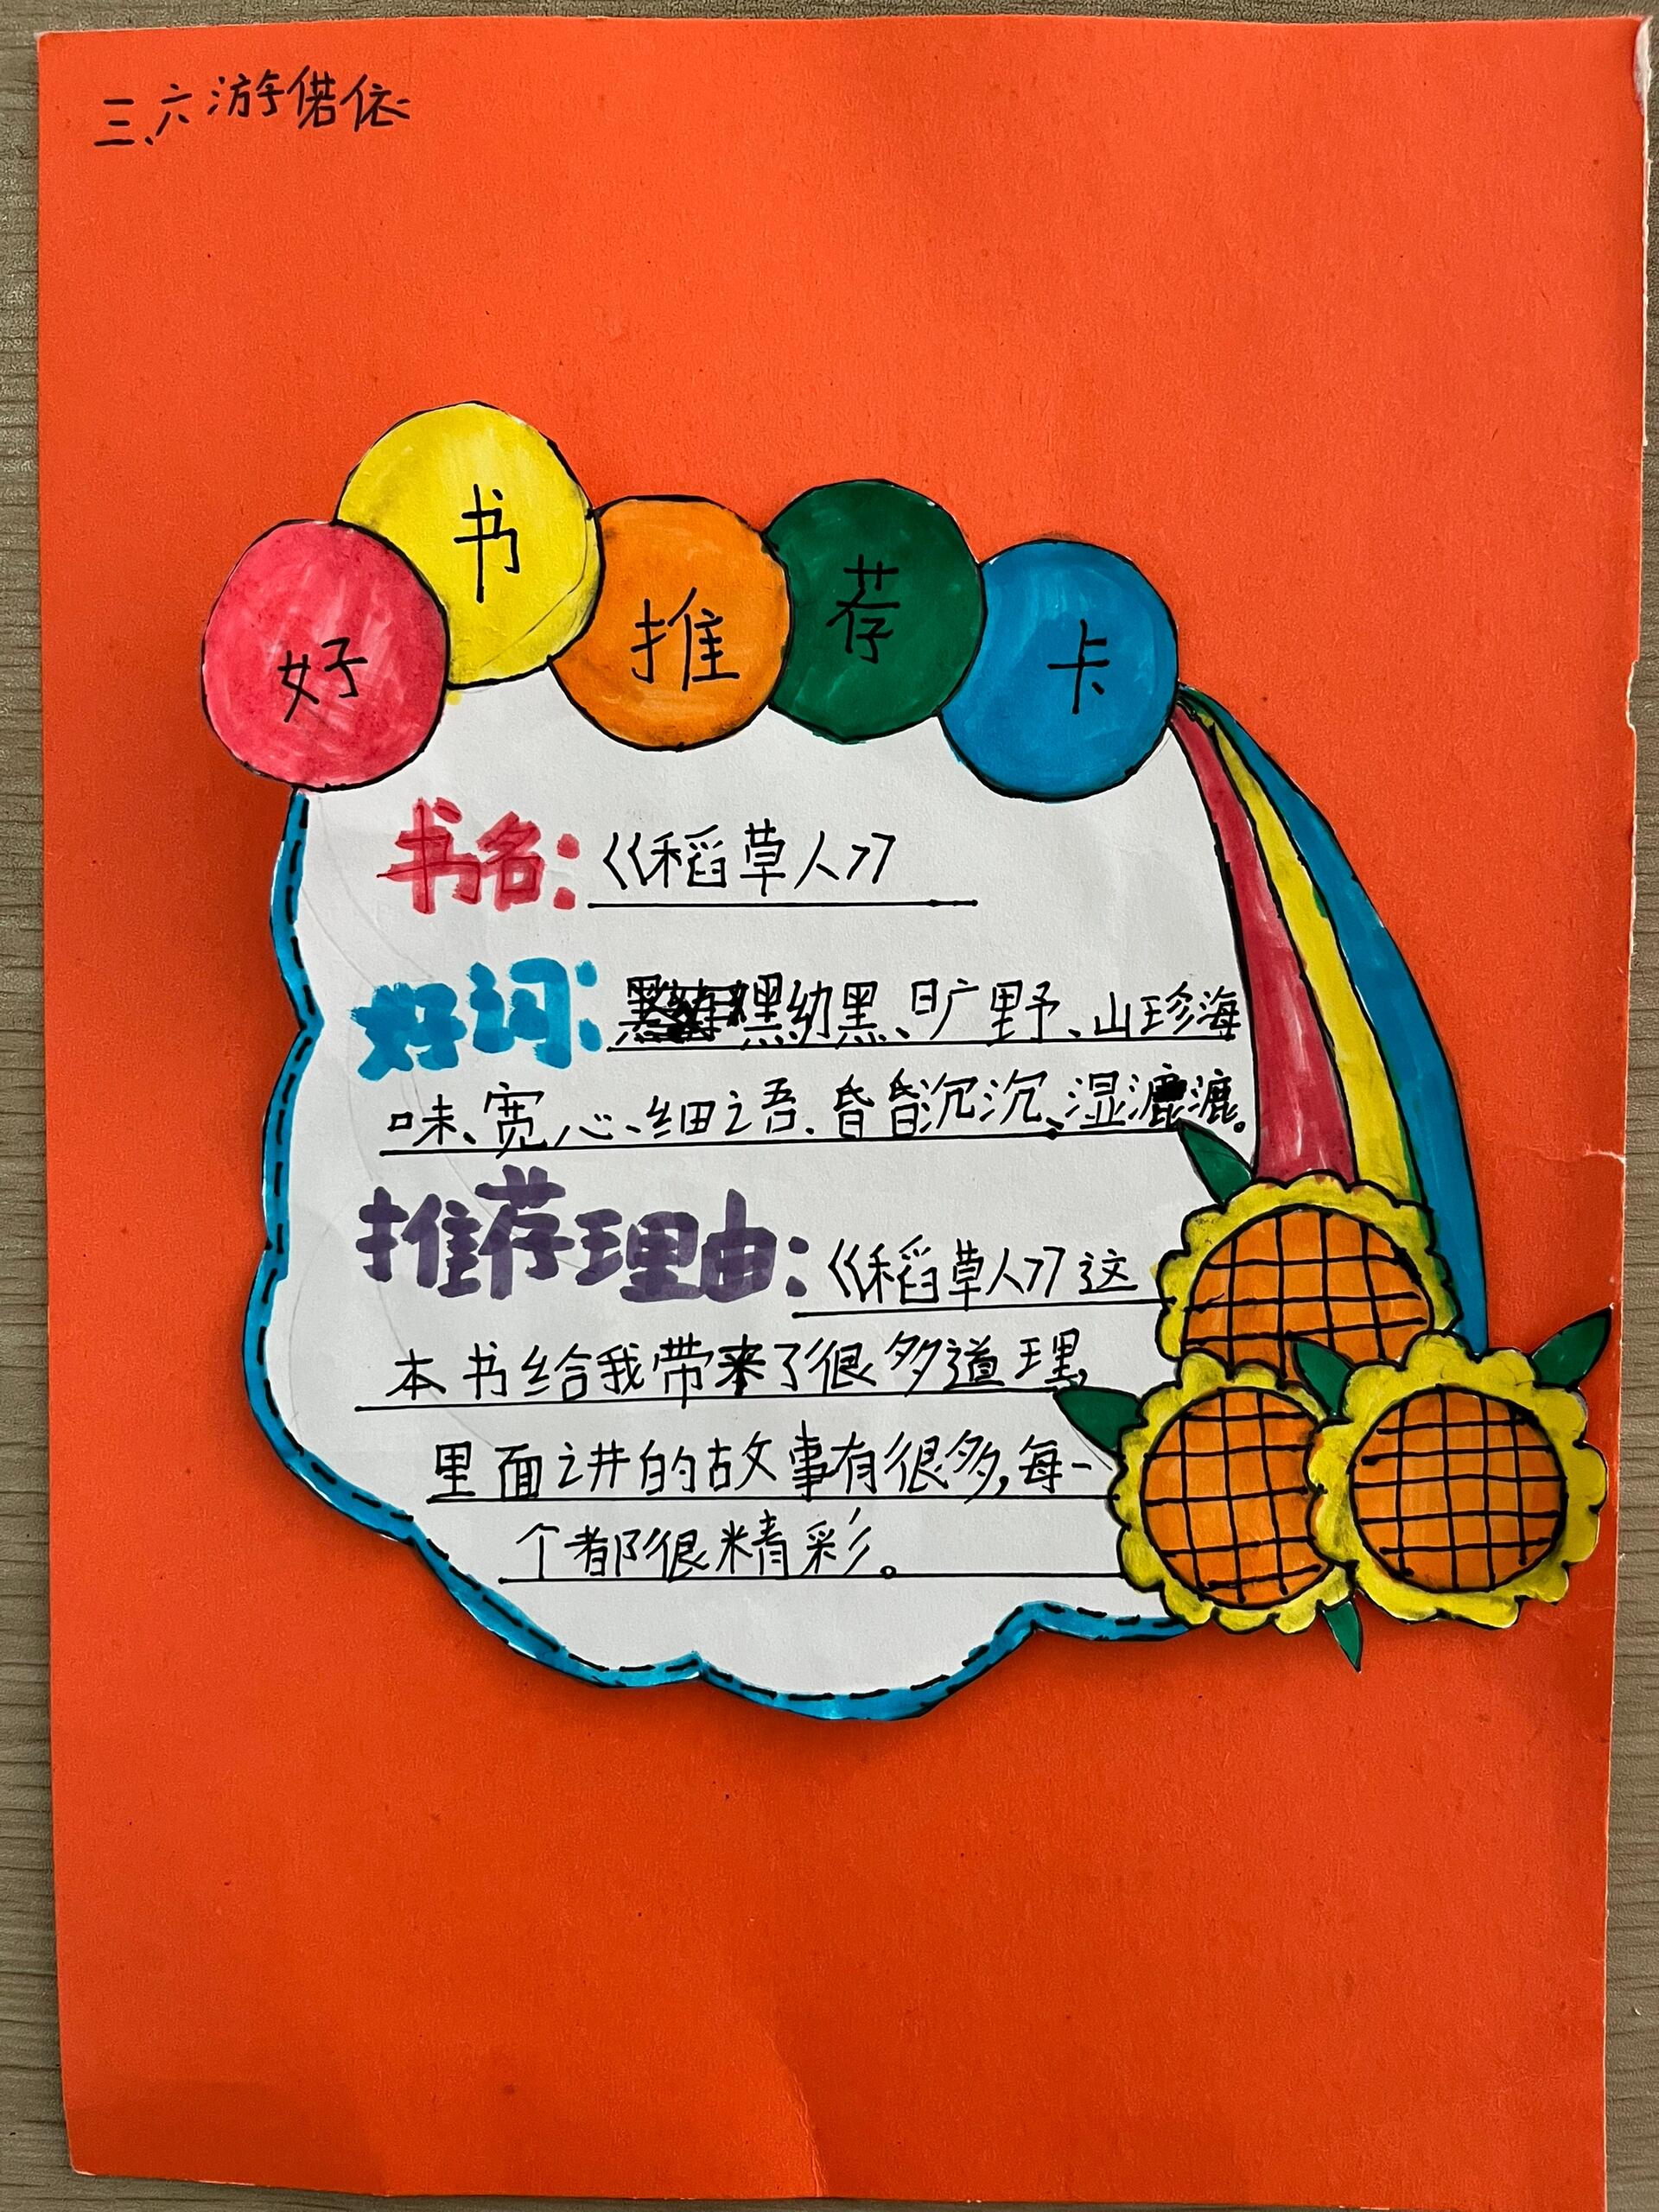 三、六游偌依
好书推荐卡
书名:《稻草人》
好词:黑幼黑、旷野、山珍海
味、宽心、细语、昏昏沉沉、湿漉漉。
推荐理由:《稻草人》这
本书给我带来了很多道理,
里面讲的故事有很多,每一
个都很精彩。